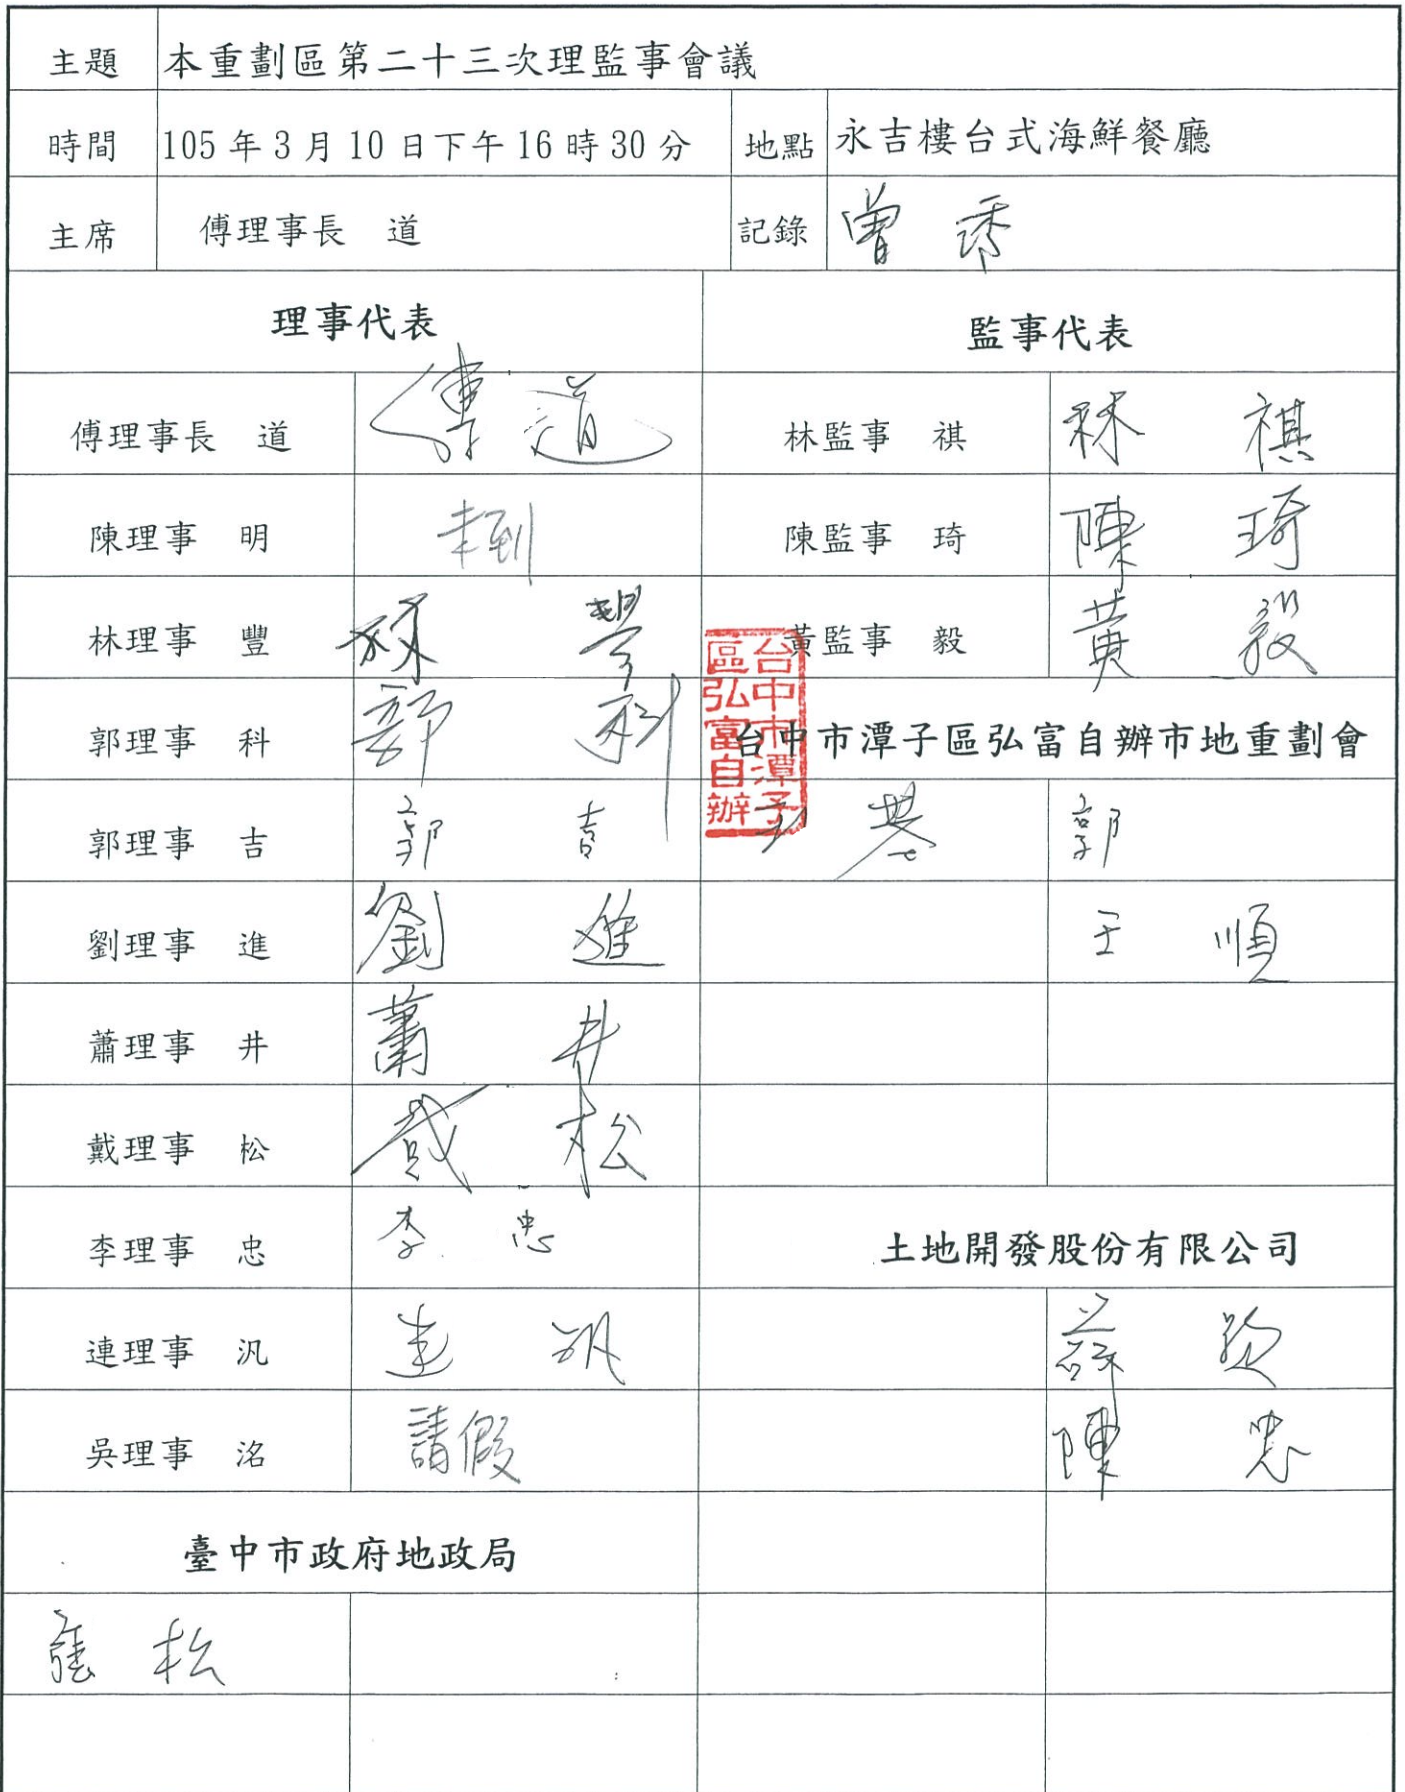 主題 本重劃區第二十三次理監事會議
時間 105 年 3 月 10 日下午 16 時 30 分 地點 永吉樓台式海鮮餐廳
主席 傅理事長 道 記錄 曾 琇
理事代表 監事代表
傅理事長 道 傅 道 林監事 祺 林 祺
陳理事 明 未到 陳監事 琦 陳 琦
林理事 豐 林 豐 黃監事 毅 黃 毅
郭理事 科 郭 科 台中市潭子區弘富自辦市地重劃會
台中市潭子
區弘富自辦
郭理事 吉 郭 吉 郭
劉理事 進 劉 進 王 順
蕭理事 井 蕭 井
戴理事 松 戴 松
李理事 忠 李 忠 土地開發股份有限公司
連理事 汎 連 汎 蘇
吳理事 洺 請假 陳 忠
臺中市政府地政局
松